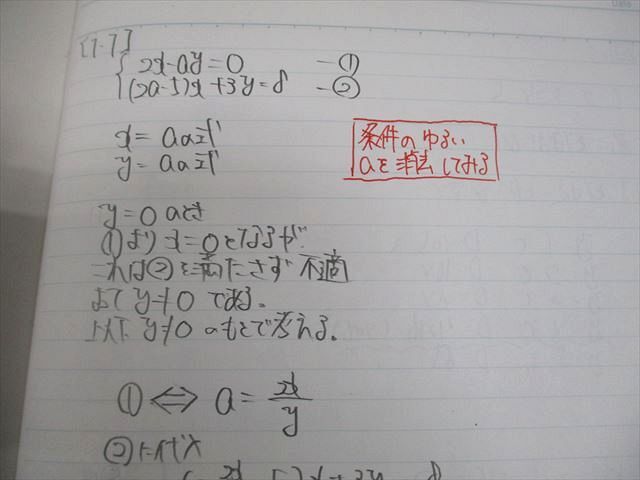 [1・7]
2x-ay=0 —①
(2a-5)x+3y=8 —②
x= aの式
y= aの式
条件のゆるい
aを消去してみる
y=0のとき
①よりx=0となるが
これは②を満たさず不適
よってy≠0である。
以下y≠0のもとで考える。
①⇔a=2x/y
②に代入